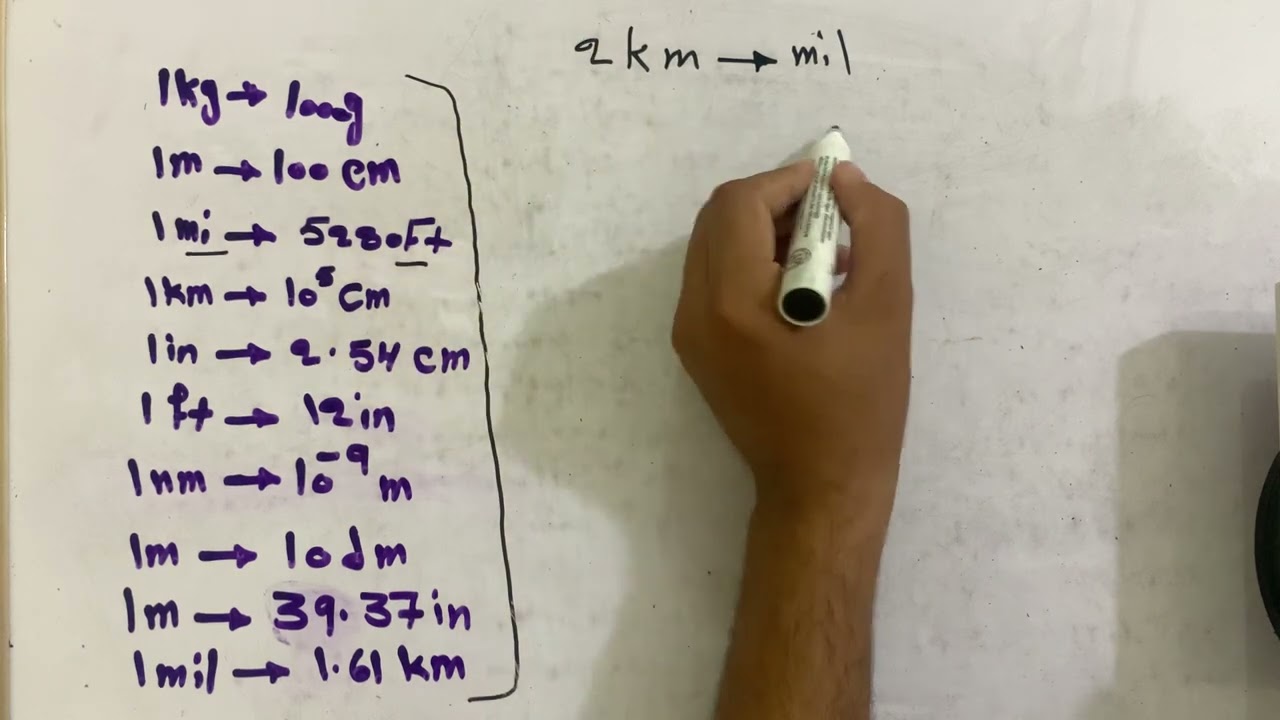 2 km → mil
1kg → 1000g
1m → 100 cm
1mi → 5280Ft
1km → 10⁵ cm
1in → 2.54 cm
1 ft → 12in
1nm → 10⁻⁹ m
1m → 10dm
1m → 39.37in
1mil → 1.61 km